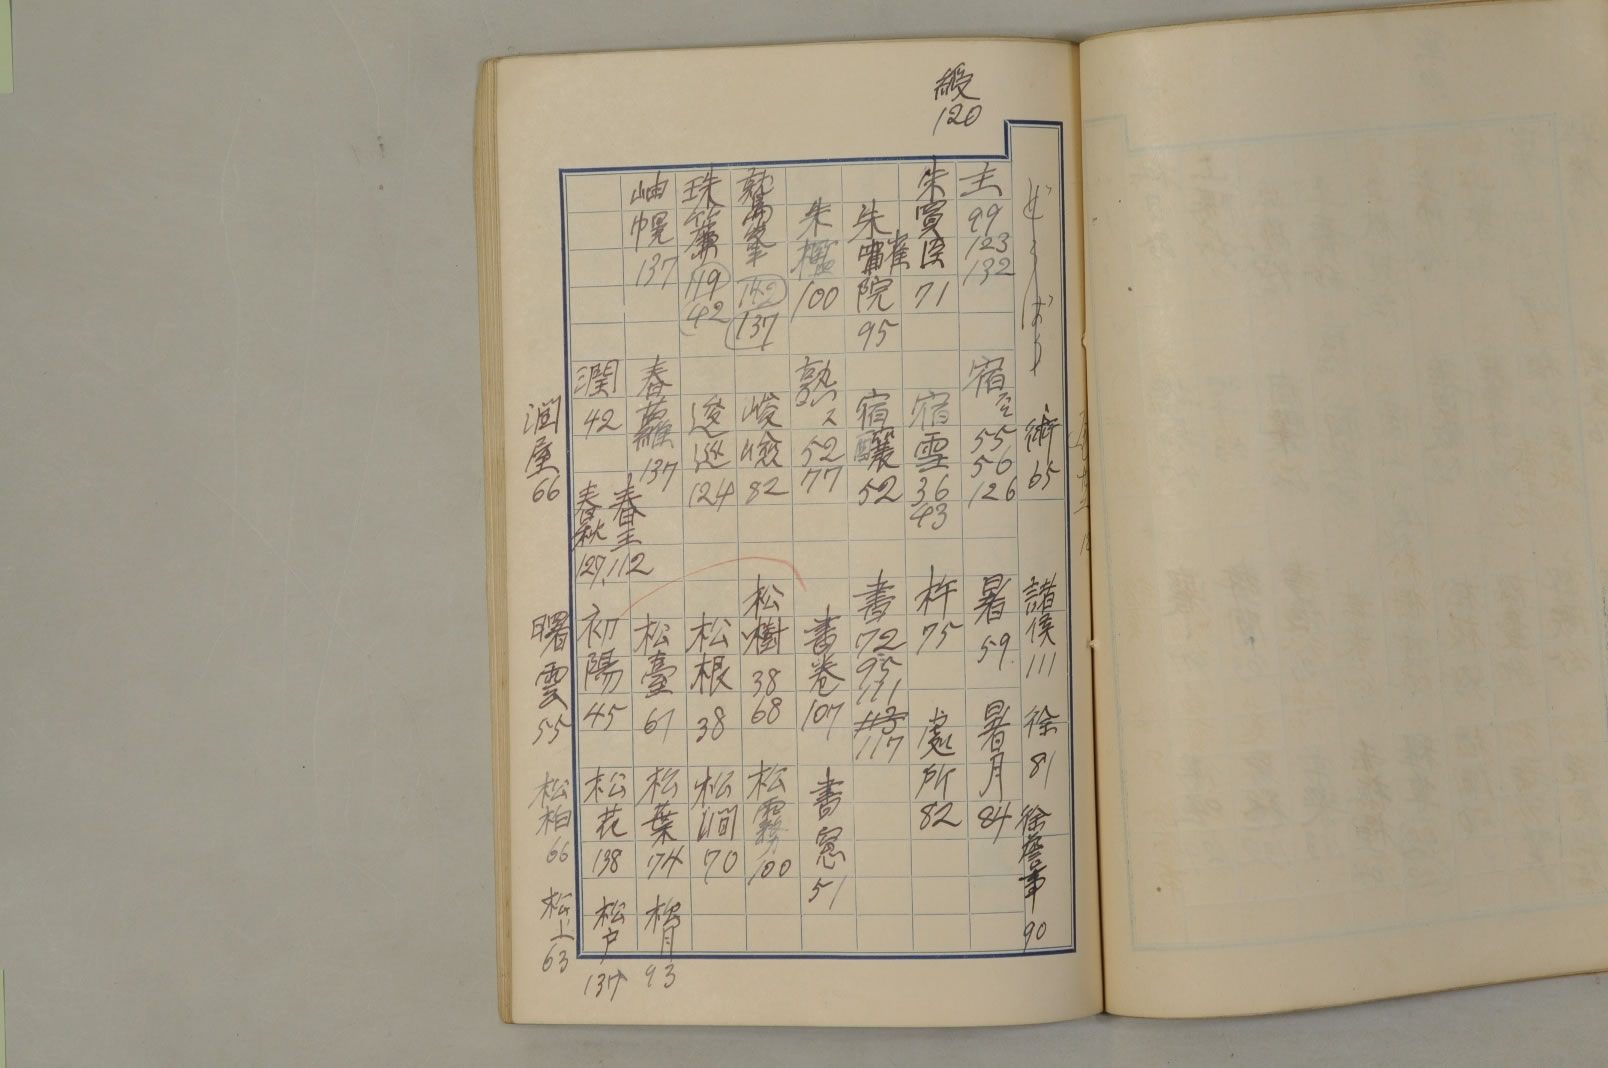 綬 120
術 65
諸侯 111
徐 81
徐詹事 90
主 99 123 132
宿 55 56 126
暑 59
暑月 84
朱買臣 71
宿雪 36 43
杵 75
處所 82
朱雀院 95
宿 52
書 72 95 111 117
朱檻 100
熟ス 52 77
書卷 107
書窓 51
142 137
峻嶮 82
松樹 38 68
松霧 100
珠簾 119 42
逡巡 124
松根 38
松澗 70
岫幌 137
春蘿 137
春王 112
松臺 61
松葉 74
松月 93
潤 42
春秋 127
初陽 45
松花 138
松戸 137
潤屋 66
曙雲 55
松柏 66
松上 63